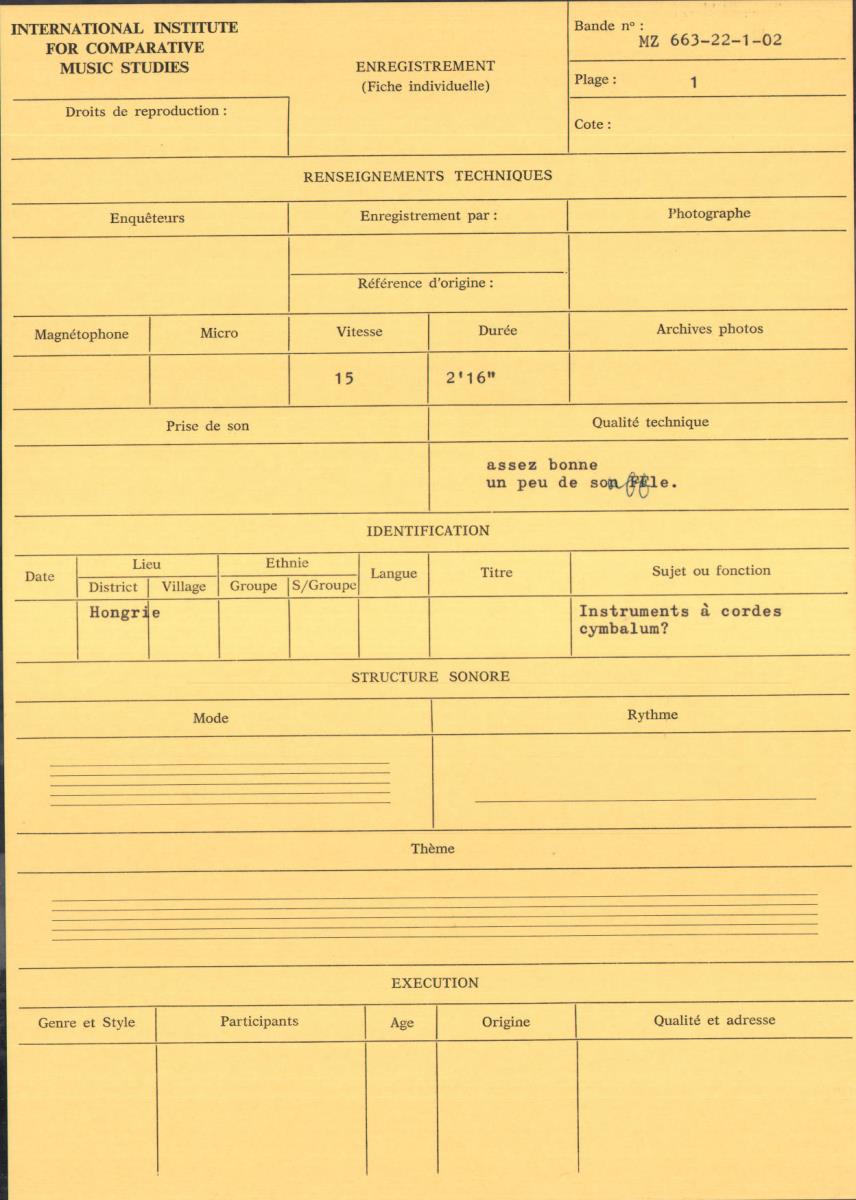 INTERNATIONAL INSTITUTE
FOR COMPARATIVE
MUSIC STUDIES
Droits de reproduction :
ENREGISTREMENT
(Fiche individuelle)
Bande nº :
MZ 663-22-1-02
Plage : 1
Cote :
RENSEIGNEMENTS TECHNIQUES
Enquêteurs
Enregistrement par :
Photographe
Référence d'origine :
Magnétophone
Micro
Vitesse
Durée
Archives photos
15
2'16"
Prise de son
Qualité technique
assez bonne
un peu de
IDENTIFICATION
Date
Lieu
Ethnie
Langue
Titre
Sujet ou fonction
District
Village
Groupe
S/Groupe
Hongrie
Instruments à cordes
cymbalum?
STRUCTURE SONORE
Mode
Rythme
Thème
EXECUTION
Genre et Style
Participants
Age
Origine
Qualité et adresse